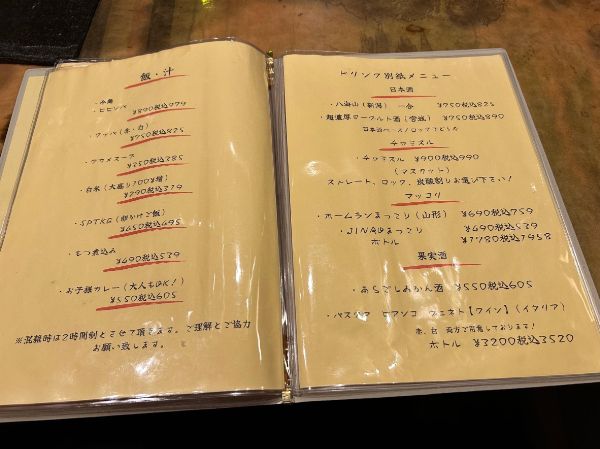 飯・汁
・冷麺
・ビビンバ ¥890税込979
・クッパ(赤・白)
¥750税込825
・ワカメスープ
¥350税込385
・白米(大盛り100¥増)
¥290税込319
・SPTKG(卵かけご飯)
¥450税込495
・もつ煮込み
¥490税込539
・お子様カレー(大人もOK!)
¥550税込605
※混雑時は2時間制とさせて頂きます。ご理解とご協力
お願い致します。
ドリンク別紙メニュー
日本酒
・八海山(新潟) 一合 ¥750税込825
・超濃厚ヨーグルト酒(宮城) ¥750税込890
日本酒ベース/ロックでどうぞ
チャミスル
・チャミスル ¥900税込990
(マスカット)
ストレート、ロック、炭酸割りお選び下さい!
マッコリ
・ホームランまっこり(山形) ¥690税込759
・JINROまっこり ¥490税込539
ボトル ¥1780税込1958
果実酒
・あらごしみかん酒 ¥550税込605
・パスクア ビアンコ ヴェネト【ワイン】(イタリア)
赤、白 両方ご用意しております!
ボトル ¥3200税込3520